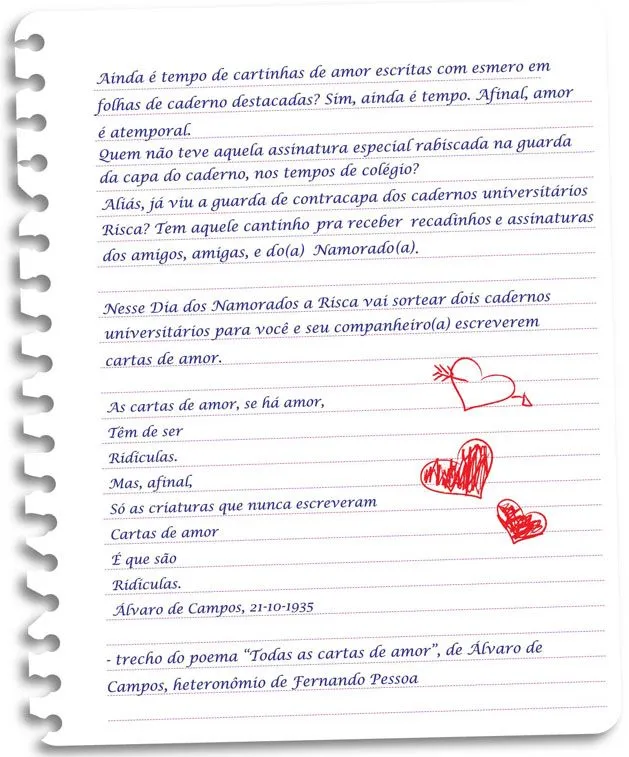 Ainda é tempo de cartinhas de amor escritas com esmero em
folhas de caderno destacadas? Sim, ainda é tempo. Afinal, amor
é atemporal.
Quem não teve aquela assinatura especial rabiscada na guarda
da capa do caderno, nos tempos de colégio?
Aliás, já viu a guarda de contracapa dos cadernos universitários
Risca? Tem aquele cantinho pra receber recadinhos e assinaturas
dos amigos, amigas, e do(a) Namorado(a).
Nesse Dia dos Namorados a Risca vai sortear dois cadernos
universitários para você e seu companheiro(a) escreverem
cartas de amor.
As cartas de amor, se há amor,
Têm de ser
Ridículas.
Mas, afinal,
Só as criaturas que nunca escreveram
Cartas de amor
É que são
Ridículas.
Álvaro de Campos, 21-10-1935
- trecho do poema “Todas as cartas de amor”, de Álvaro de
Campos, heteronômio de Fernando Pessoa